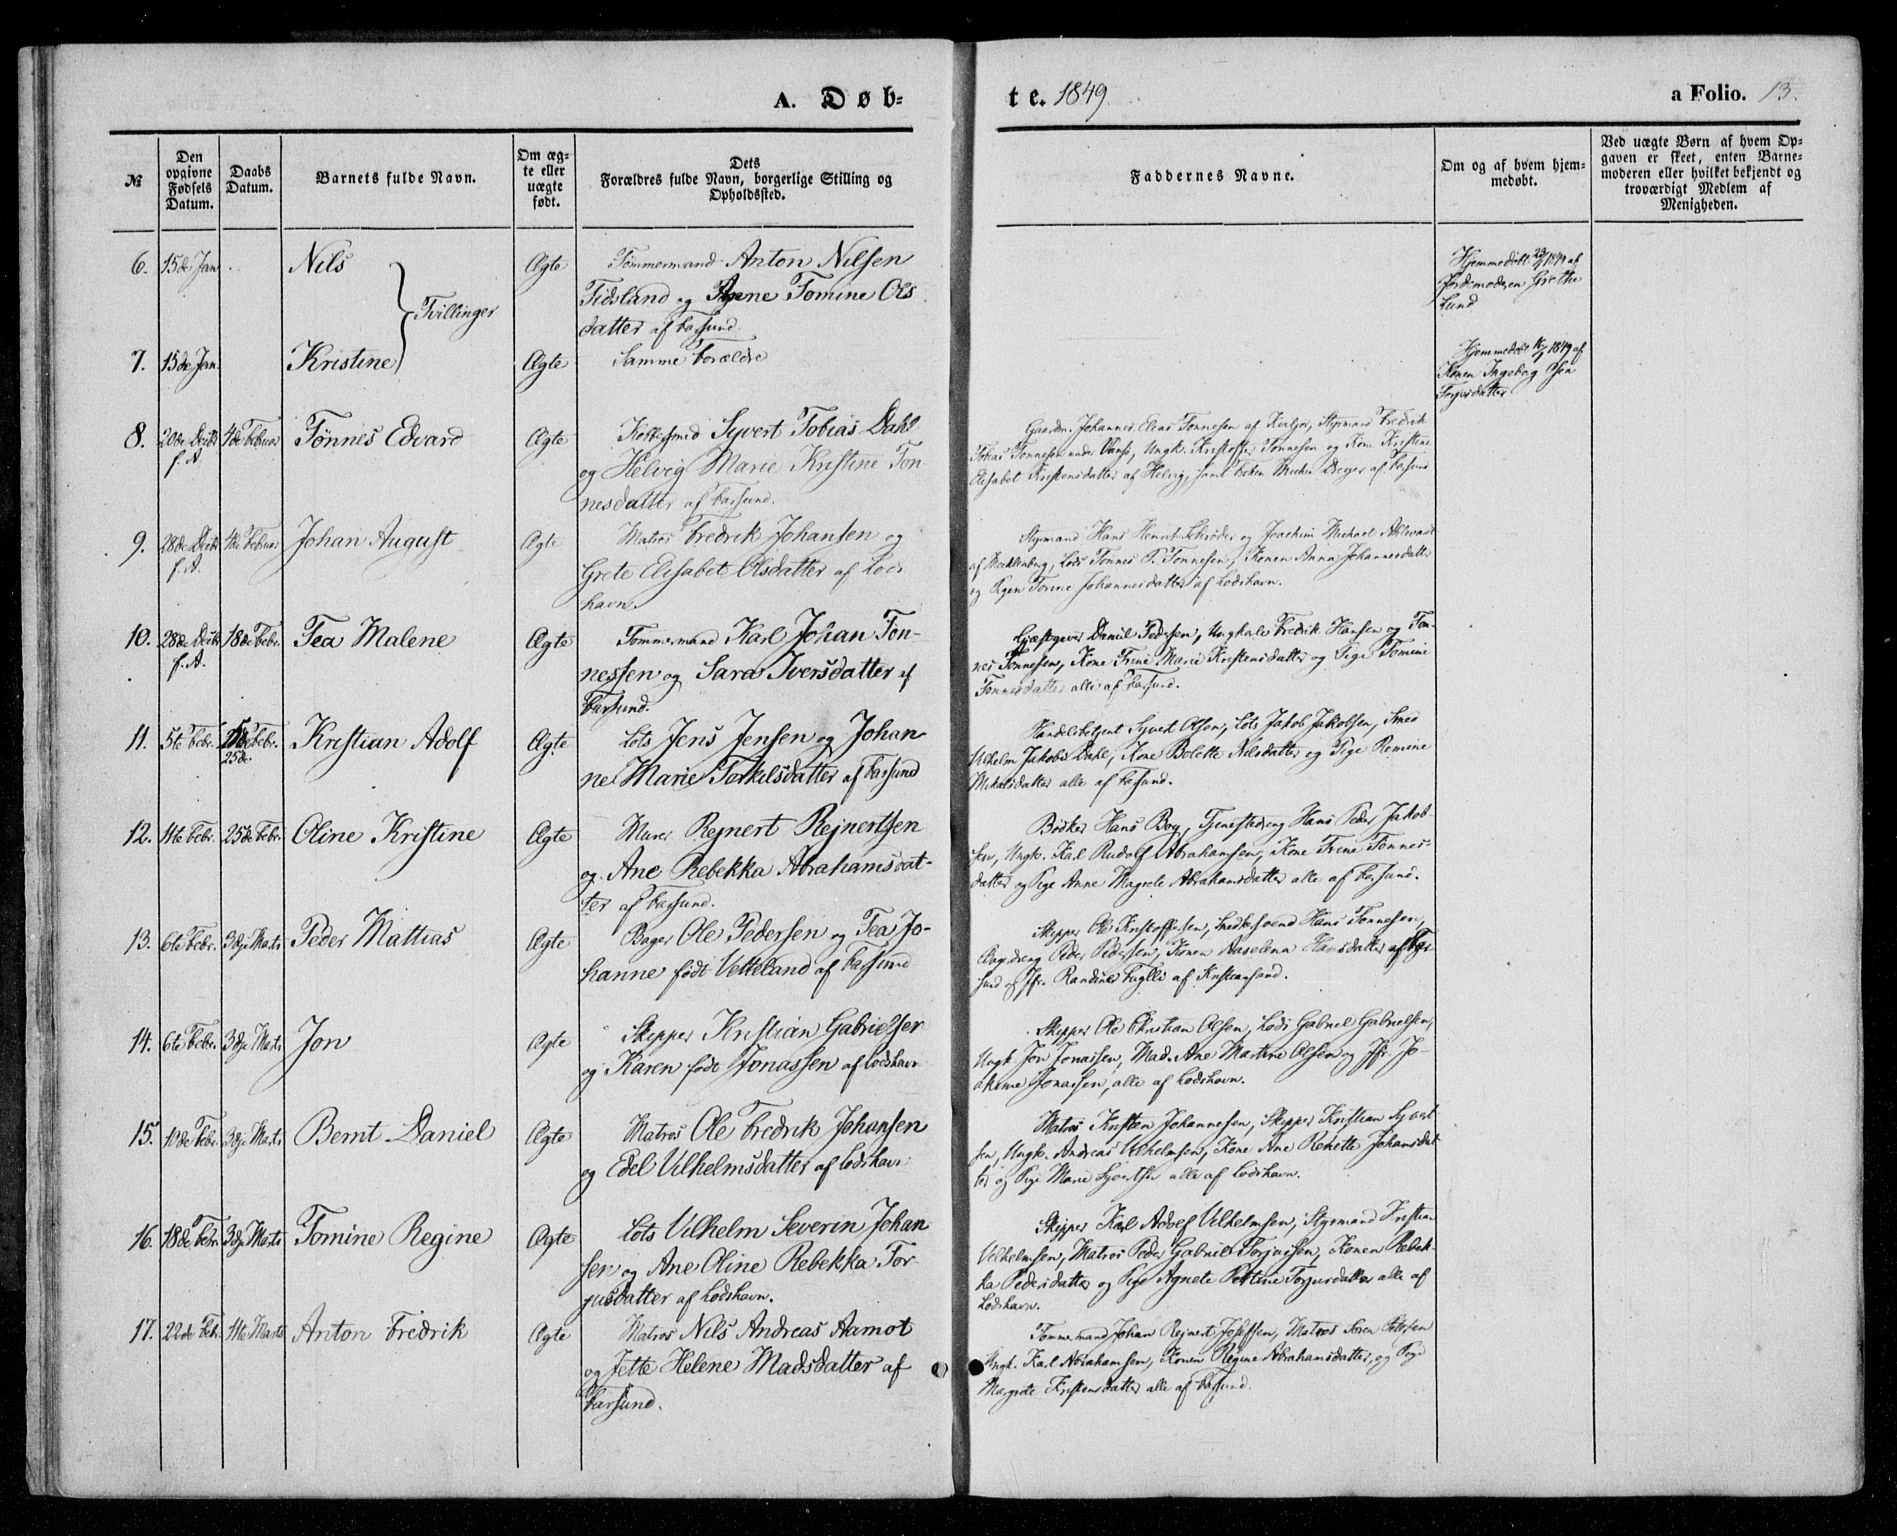 A. Døb-
te. 1849.
a Folio. 13.
№
Den opgivne Fødsels Datum.
Daabs Datum.
Barnets fulde Navn.
Om ægte eller uægte født.
Dets Forældres fulde Navn, borgerlige Stilling og Opholdssted.
Faddernes Navne.
Om og af hvem hjemmedøbt.
Ved uægte Børn af hvem Opgaven er skeet, enten Barnemoderen eller hvilket bekjendt og troværdigt Medlem af Menigheden.
6. 15de Jan. Nils Ægte Tømmermand Anton Nilsen
Tidsland og Anne Tomine Ols
datter af Farsund.
Tvillinger
Hjemmedøbt 1849 af
Jordemoderen Grethe
Lund
7. 15de Jan. Kristine Ægte Samme Forældre
Hjemmedøbt 1849 af
Konen Ingebog
Torjusdatter
8. 20de Decbr. f. A. 4de Februar Tønnes Edvard Ægte Kobbersmed Syvert Tobias Dahl
og Helvig Marie Kristine Tøn-
nesdatter af Farsund.
Gaardm. Johannes Elias Tønnesen af , Styrmand Fredrik
Tobias Tønnesen under Vansø, Ungk. Kristoffer Tønnesen og Kone Kristine
Elisabet Kristensdatter af Helvig, samt af Farsund
9. 28de Decbr. f. A. 4de Februar Johan August Ægte Matros Fredrik Johansen og
Grete Elisabet Olsdatter af Lods
havn.
Styrmand Hans Henrik Schrøder og Joachim Michael
af Mecklenburg, Lods Tønnes P. Tønnesen, Konen Anna Johannesdatter
og Pigen Tonne Johannesdatter af Lodshavn.
10. 28de Decbr. f. A. 18de Febr. Tea Malene Ægte Tømmermand Karl Johan Tøn-
nessen og Sara Iversdatter af
Farsund.
Gjæstgiver Daniel Pedersen, Ungkarle Fredrik Hansen og Tøn-
nes Tønnesen, Kone Trine Marie Kristensdatter og Pige Tomine
Tønnesdatter alle af Farsund.
11. 5te Febr. 25de Febr. 25de. Kristian Adolf Ægte Lots Jens Jensen og Johan
ne Marie Torkilsdatter af Farsund
Handelsbetjent Syvert Olsen, Lots Jakob Jakobsen, Smed
Vilhelm Jakobi Dahl, Kone Bolette Nilsdatter og Pige Remine
Mikalsdatter alle af Farsund.
12. 11te Febr. 25de Febr. Oline Kristine Ægte Murer Rejnert Rejnertsen
og Ane Rebekka Abrahamsdat-
ter af Farsund.
Bødker Hans Boy, Tjenestedreng Hans Peder Jakob-
sen, Ungk. Karl Rudolf Abrahamsen, Kone Trine Tønnes-
datter og Pige Anne Magrete Abrahamsdatter alle af Farsund.
13. 6te Febr. 3dje Marts Peder Mattias Ægte Bager Ole Pedersen og Tea Jo-
hanne født Vetteland af Farsund
Skipper Ole Kristoffersen, Snedkersvend Hans Tønnesen,
Bagerdreng Peder Pedersen, Konen Aaselena Hansdatter af Far-
sund og Jfr. Randine Fuglli af Kristiansand.
14. 6te Febr. 3dje Marts Jon Ægte Skipper Kristian Gabrielsen
og Karen født Jonassen af Lodshavn
Skipper Ole Christian Olsen, Lods Gabriel Gabrielsen,
Ungk. Jon Jonassen, Mad. Ane Martine Olsen og Jfr. Jo-
akime Jonassen, alle af Lodshavn.
15. 10de Febr. 3dje Marts Bernt Daniel Ægte Matros Ole Fredrik Johansen
og Edel Vilhelmsdatter af Lodshavn
Matros Kristen Johannesen, Skipper Kristian Syvert
sen, Ungk. Andreas Vilhelmsen, Kone Ane Renette Johansdat
ter og Pige Marie Syvertsen alle af Lodshavn.
16. 18de Febr. 3dje Marts Tomine Regine Ægte Lots Vilhelm Severin Johan
sen og Ane Oline Rebekka Tor
jusdatter af Lodshavn.
Skipper Karl Adolf Vilhelmsen, Styrmand Kristian
Vilhelmsen, Matros Peder Gabriel Torjussen, Konen Rebek-
ka Pedersdatter og Pige Agnete Petrine Torjusdatter alle af
Lodshavn.
17. 22de Febr. 11te Marts Anton Fredrik Ægte Matros Nils Andreas Aamot
og Jette Helene Madsdatter af
Farsund.
Tømmermand Johan Rejnert Josefsen, Matros Søren Pettersen
Ungk. Karl Abrahamsen, Konen Regine Abrahamsdatter, og Pige
Magrete Kristensdatter alle af Farsund.